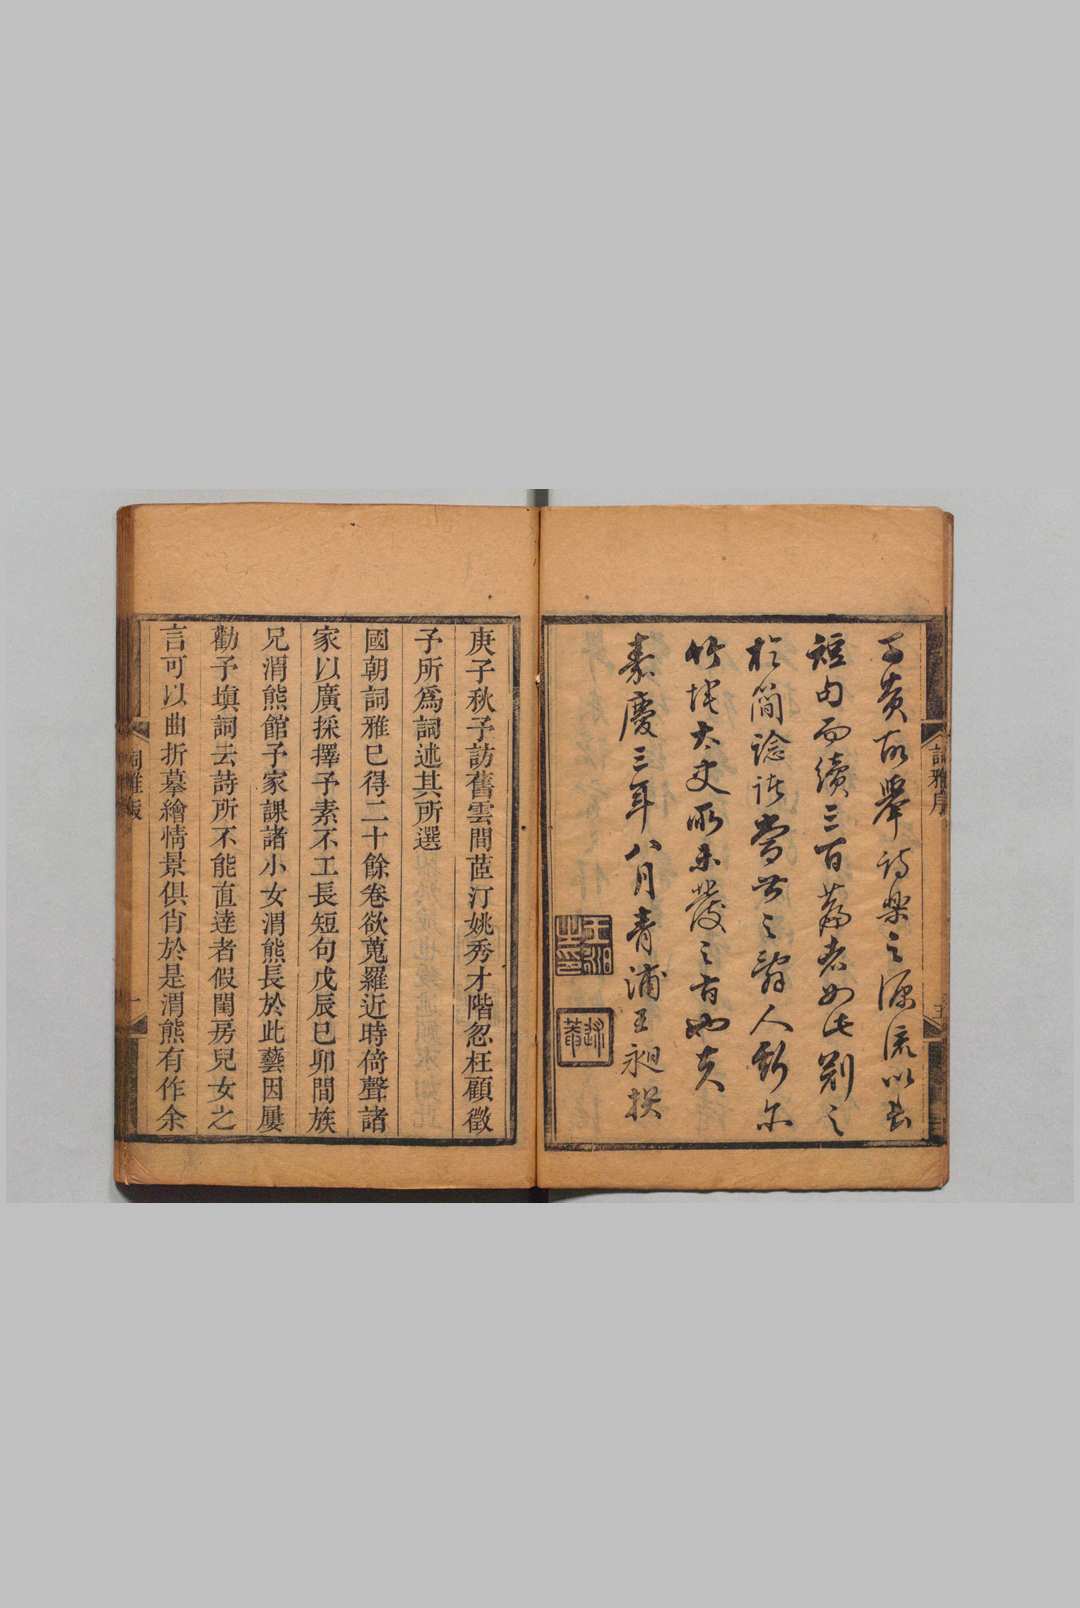 詞雅序
可貴故舉詩樂之源流以書
短句而續三百篇者如此刻之
於簡諗諸當世之詞人斯亦
竹垞太丈所未發之旨也夫
嘉慶三年八月青浦王昶撰
王昶之印
述菴
庚子秋予訪舊雲間茝汀姚秀才階忽枉顧徵
予所爲詞述其所選
國朝詞雅已得二十餘卷欲蒐羅近時倚聲諸
家以廣採擇予素不工長短句戊辰巳卯間族
兄渭熊館予家課諸小女渭熊長於此藝因屢
勸予填詞去詩所不能直達者假閨房兒女之
言可以曲折摹繪情景俱肖於是渭熊有作余
詞雅
一